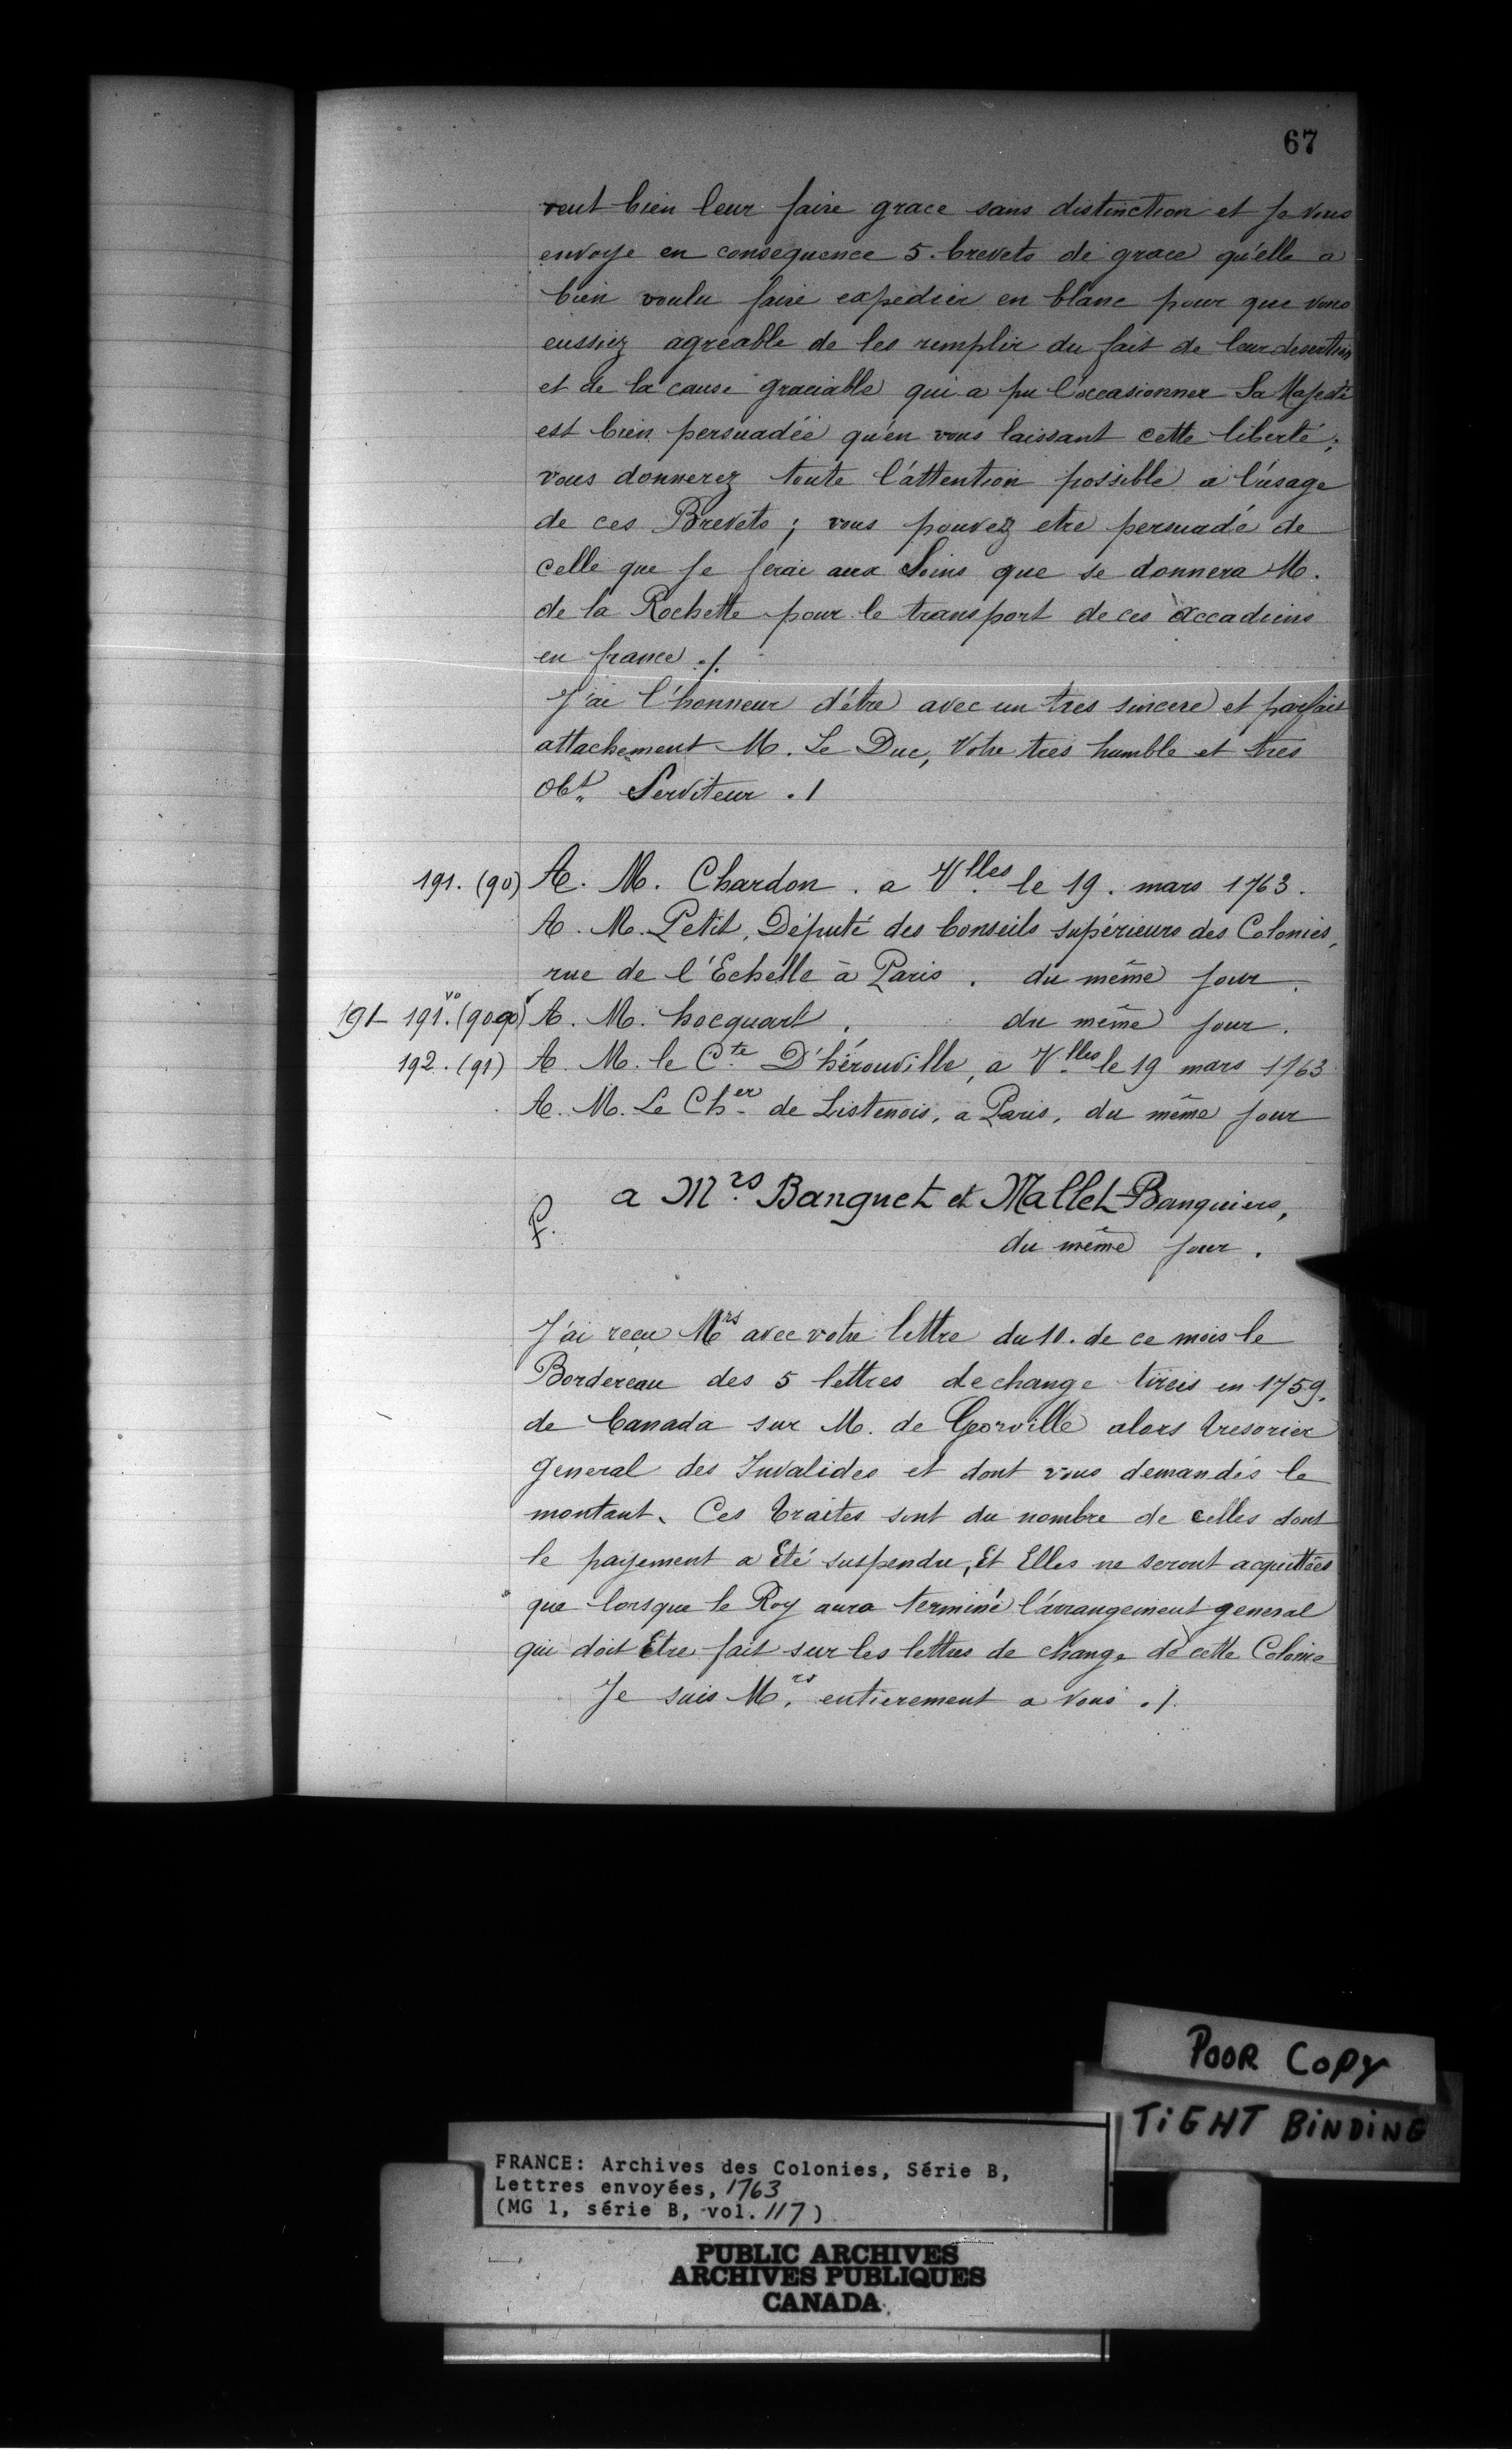 67
veut bien leur faire grace sans distinction et Je vous
envoye en consequence 5. brevets de grace qu'elle a
bien voulu faire expedier en blanc pour que vous
eussiez agreable de les remplir du fait de leur desertion
et de la cause graciable qui a pu l'occasionner Sa Majesté
est bien persuadée qu'en vous laissant cette liberté;
vous donnerez toute l'attention possible a l'usage
de ces Brevets; vous pouvez etre persuadé de
celle que Je ferai aux Soins que se donnera M.
de la Rochette pour le transport de ces accadiens
en france ./.
J'ai l'honneur d'être avec un tres sincere et parfait
attachement M. Le Duc, Votre tres humble et tres
obt. Serviteur ./
191. (90) A. M. Chardon. a Vlles le 19. mars 1763.
A. M. Petit, Député des Conseils supérieurs des Colonies,
rue de l'Echelle à Paris. du même jour.
191-191.vo (90-90v) A. M. hocquart. du même jour.
192. (91) A. M. le Cte D'hérouville, a Vlles le 19 mars 1763
A. M. Le Cher de Listenois, a Paris, du même jour
a Mrs. Banquet et Mallet Banquiers,
F. du même jour.
J'ai reçu Mrs avec votre lettre du 10. de ce mois le
Bordereau des 5 lettres de change tireis en 1759.
de Canada sur M. de Georville alors tresorier
general des Invalides et dont vous demandés le
montant. Ces traites sont du nombre de celles dont
le payement a Eté suspendu, Et Elles ne seront acquittées
que lorsque le Roy aura terminé l'arrangement general
qui doit Etre fait sur les lettres de change de cette Colonie
Je suis Mrs. entierement a vous ./.
POOR COPY
TIGHT BINDING
FRANCE: Archives des Colonies, Série B,
Lettres envoyées, 1763
(MG 1, série B, vol. 117)
PUBLIC ARCHIVES
ARCHIVES PUBLIQUES
CANADA